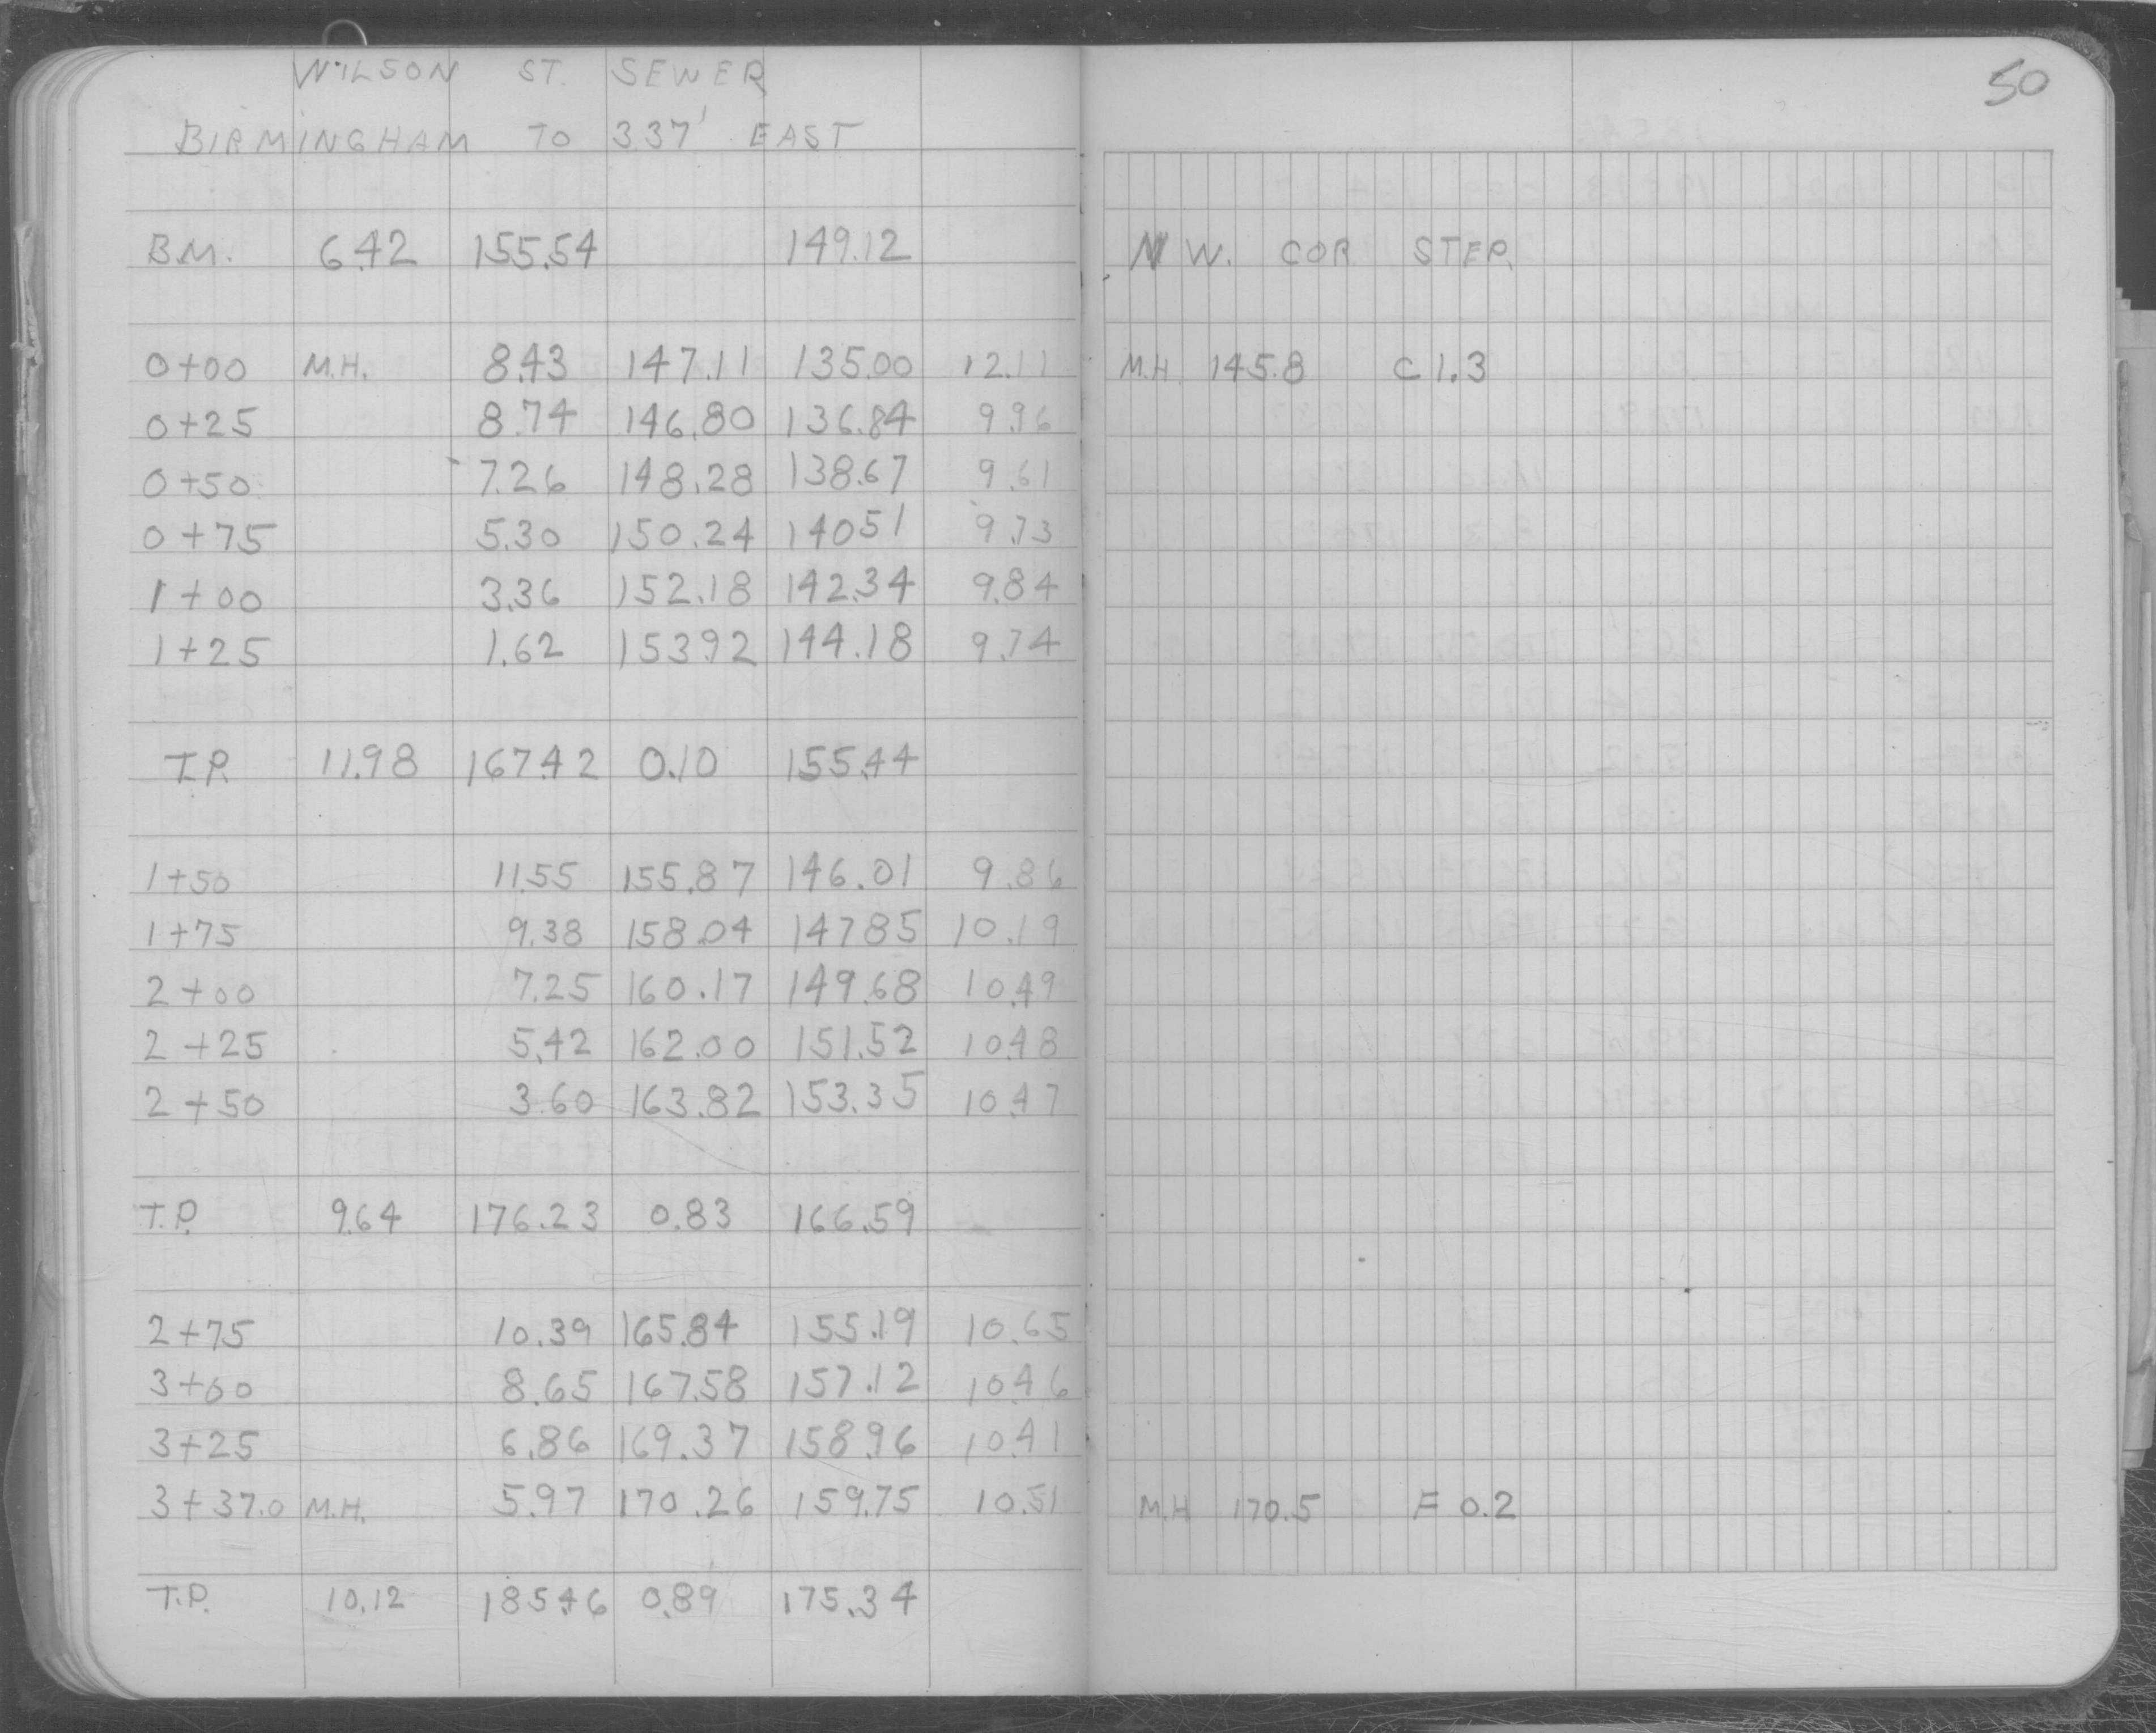 WILSON ST. SEWER
BIRMINGHAM TO 337' EAST
50
B.M. 6.42 155.54 149.12 N W. COR STEP.
0+00 M.H. 8.43 147.11 135.00 12.11 M.H 145.8 C 1.3
0+25 8.74 146.80 136.84 9.96
0+50 7.26 148.28 138.67 9.61
0+75 5.30 150.24 140.51 9.73
1+00 3.36 152.18 142.34 9.84
1+25 1.62 153.92 144.18 9.74
T.P. 11.98 167.42 0.10 155.44
1+50 11.55 155.87 146.01 9.86
1+75 9.38 158.04 147.85 10.19
2+00 7.25 160.17 149.68 10.49
2+25 5.42 162.00 151.52 10.48
2+50 3.60 163.82 153.35 10.47
T.P. 9.64 176.23 0.83 166.59
2+75 10.39 165.84 155.19 10.65
3+00 8.65 167.58 157.12 10.46
3+25 6.86 169.37 158.96 10.41
3+37.0 M.H. 5.97 170.26 159.75 10.51 M.H 170.5 F 0.2
T.P. 10.12 185.46 0.89 175.34